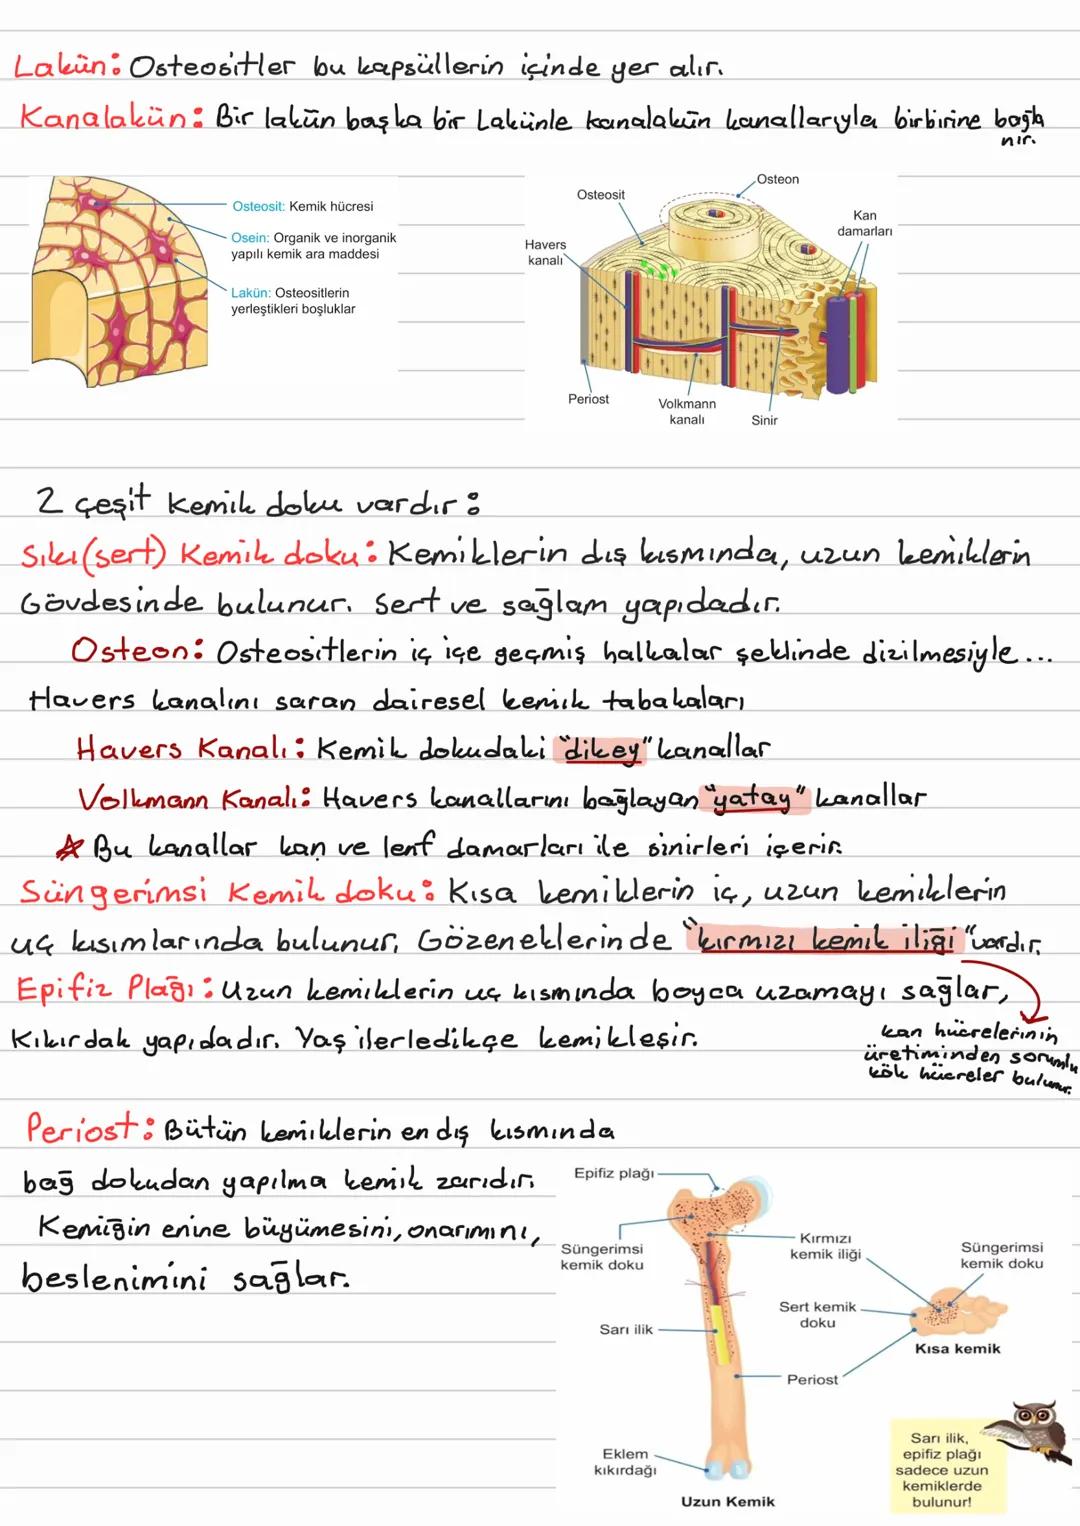 Lakün: Osteositler bu kapsüllerin içinde yer alır.
Kanalakün: Bir lakün başka bir Lakünle kanalakün kanallarıyla birbirine bağla
nır.
Osteosit: Kemik hücresi
Osein: Organik ve inorganik
yapılı kemik ara maddesi
Lakün: Osteositlerin
yerleştikleri boşluklar
Osteon
Osteosit
Kan
damarları
Havers
kanalı
Periost
Volkmann
kanalı
Sinir
2 çeşit kemik doku vardır:
Sıkı(sert) Kemik doku: Kemiklerin dış kısmında, uzun kemiklerin
Gövdesinde bulunur. Sert ve sağlam yapıdadır.
Osteon: Osteositlerin iç içe geçmiş halkalar şeklinde dizilmesiyle...
Havers kanalını saran dairesel kemik tabakaları
Havers Kanalı: Kemik dokudaki "dikey" kanallar
Volkmann Kanalı: Havers kanallarını bağlayan "yatay" kanallar
Bu kanallar kan ve lenf damarları ile sinirleri içerir.
Süngerimsi Kemik doku: Kısa kemiklerin iç, uzun kemiklerin
uç kısımlarında bulunur. Gözeneklerinde "kırmızı kemik iliği" vardır.
Epifiz Plağı: Uzun kemiklerin uç kısmında boyca uzamayı sağlar,
Kıkırdak yapıdadır. Yaş ilerledikçe kemikleşir.
kan hücrelerinin
üretiminden sorumlu
kök hücreler bulunur.
Periost: Bütün kemiklerin en dış kısmında
bağ dokudan yapılma kemik zarıdır.
Kemiğin enine büyümesini, onarımını,
beslenimini sağlar.
Epifiz plağı
Süngerimsi
kemik doku
Kırmızı
kemik iliği
Süngerimsi
kemik doku
Sert kemik
doku
Sarı ilik
Kısa kemik
Periost
Eklem
kıkırdağı
Uzun Kemik
Sarı ilik,
epifiz plağı
sadece uzun
kemiklerde
bulunur!